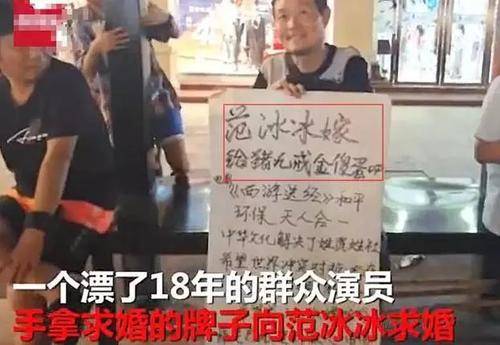 范冰冰嫁
给猪九戒金傻蛋吧
电影
《西游送经》和平
环保 天人合一
中华文化解决了姓资姓社
希望世界
一个漂了18年的群众演员
手拿求婚的牌子向范冰冰求婚